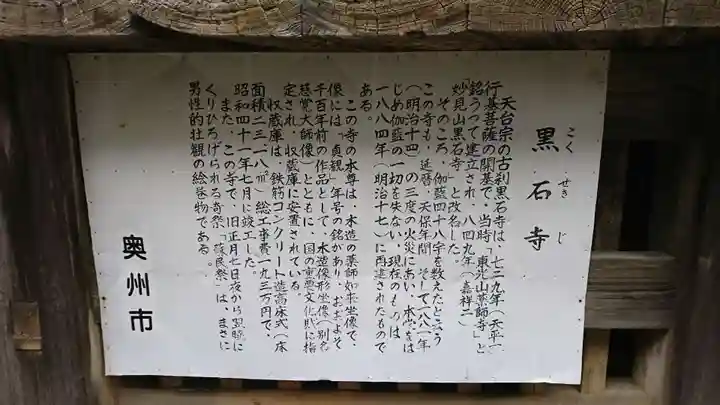 こく せき じ
黒石寺
天台宗の古刹黒石寺は、七二九年(天平一
行基菩薩の開基で、当時「東光山薬師寺」と
銘うって建立され、八四九年(嘉祥二)
「妙見山黒石寺」と改名した。
そのころ、伽藍四十八宇を数えたと云う
この寺も、延暦、天保年間、そして一八八一年
(明治十四)の三度の火災にあい、本堂をは
じめ伽藍の一切を失ない、現在のものは
一八八四年(明治十七)に再建されたもので
ある。
この寺の本尊は、木造の薬師如来坐像で、
像には「貞観」年号の銘があり、おおよそ
千百年前の作品として、木造僧形坐像(別名
慈覚大師像)とともに、国の重要文化財に指
定され、収蔵庫に安置されている。
収蔵庫は、鉄筋コンクリート造高床式(床
面積二三・一八㎡)総工事費一九三万円で、
昭和四十一年七月に竣工した。
また、この寺で、旧正月七日夜から翌暁に
くりひろげられる奇祭「蘇民祭」は、まさに
男性的壮観の絵巻物である。
奥州市